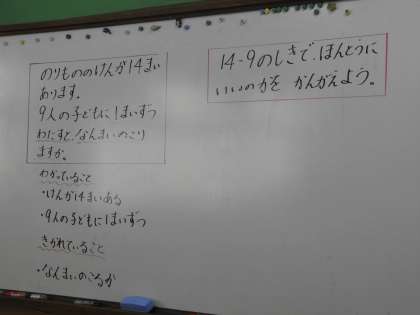 のりもののけんが14まい
あります。
9人の子どもに1まいずつ
わたすと、なんまいのこり
ますか。
わかっていること
・けんが14まいある
・9人の子どもに1まいずつ
きかれていること
・なんまいのこるか
14-9のしきで、ほんとうに
いいのかを かんがえよう。